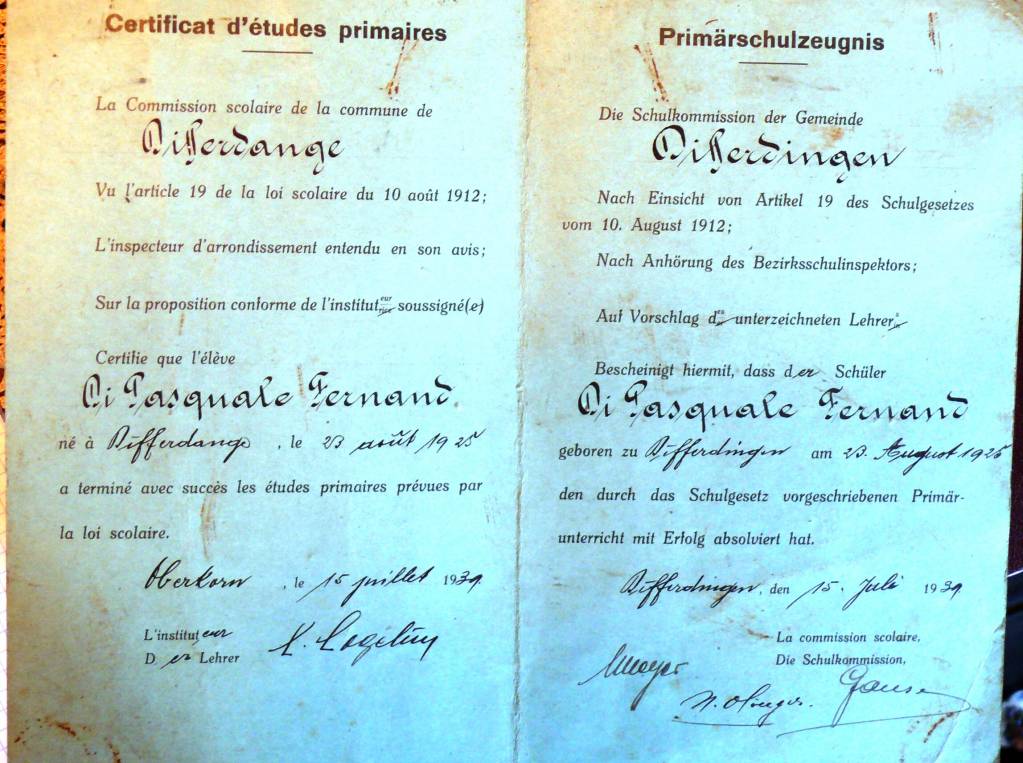 Certificat d'études primaires
La Commission scolaire de la commune de
Differdange
Vu l'article 19 de la loi scolaire du 10 août 1912;
L'inspecteur d'arrondissement entendu en son avis;
Sur la proposition conforme de l'instituteur soussigné(e)
Certifie que l'élève
Di Pasquale Fernand.
né à Differdange, le 23 août 1925
a terminé avec succès les études primaires prévues par
la loi scolaire.
Oberkorn, le 15 juillet 1939.
L'instituteur
Der Lehrer
Primärschulzeugnis
Die Schulkommission der Gemeinde
Differdingen
Nach Einsicht von Artikel 19 des Schulgesetzes
vom 10. August 1912;
Nach Anhörung des Bezirksschulinspektors;
Auf Vorschlag des unterzeichneten Lehrers
Bescheinigt hiermit, dass der Schüler
Di Pasquale Fernand
geboren zu Differdingen am 23. August 1925
den durch das Schulgesetz vorgeschriebenen Primär-
unterricht mit Erfolg absolviert hat.
Differdingen, den 15. Juli 1939.
La commission scolaire,
Die Schulkommission,
Meyer